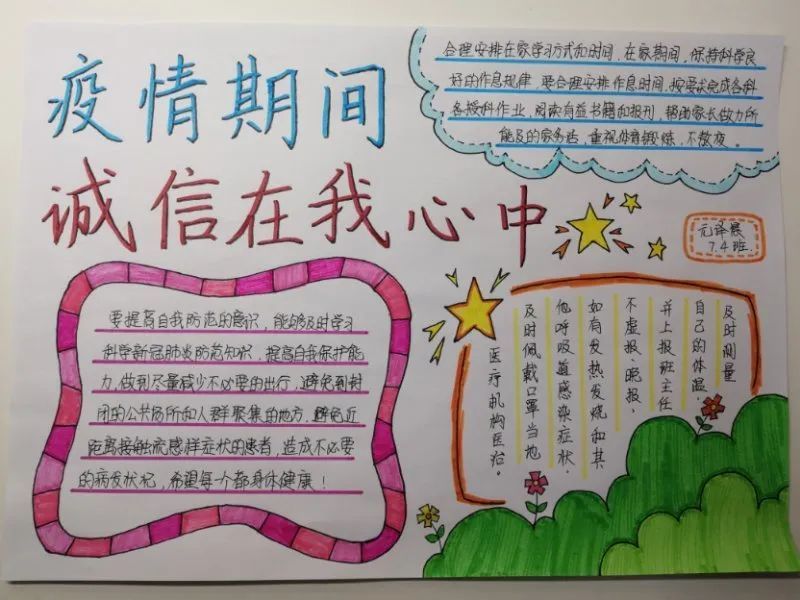 疫情期间
诚信在我心中
合理安排在家学习方式和时间，在家期间，保持科学良
好的作息规律，要合理安排作息时间，按要求完成各科
各授科作业，阅读有益书籍和报刊，帮助家长做力所
能及的家务活，重视体育锻炼，不熬夜。
元译晨
7.4班.
要提高自我防范的意识，能够及时学习
科学新冠肺炎防范知识，提高自我保护能
力，做到尽量减少不必要的出行，避免到封
闭的公共场所和人群聚集的地方，避免近
距离接触流感样症状的患者，造成不必要
的病发状况，希望每一个都身体健康！
及时测量
自己的体温，
并上报班主任
不虚报、晚报，
如有发热发烧和其
他呼吸道感染症状，
及时佩戴口罩当地
医疗机构医治。